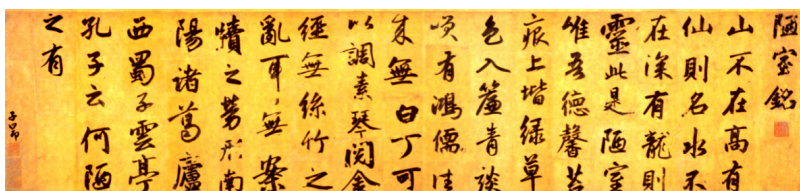 陋室銘
山不在高有
仙則名水不
在深有龍則
靈此是陋室
唯吾德馨苔
痕上堦緑草
色入簾青談
笑有鴻儒往
來無白丁可
以調素琴閱金
經無絲竹之
亂耳無案
牘之勞形南
陽諸葛廬
西蜀子雲亭
孔子云何陋
之有
子昂